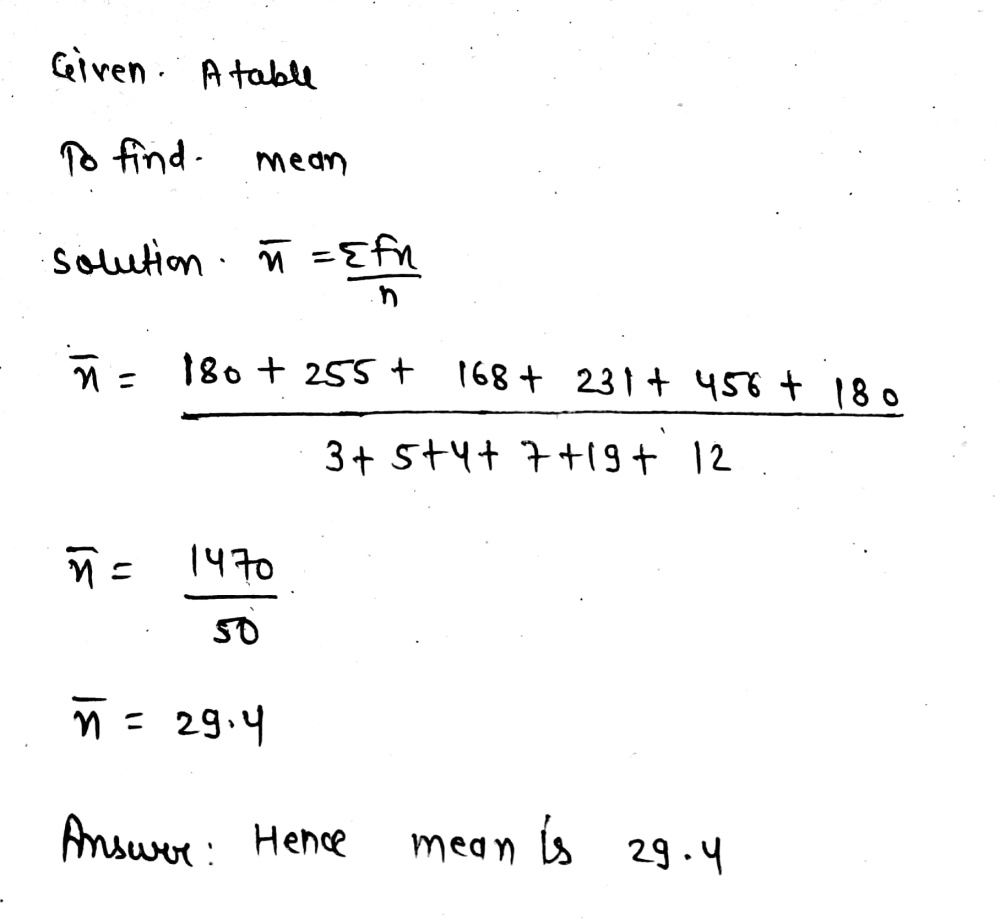 Given. A table
To find. mean
Solution. x̄ = Σfx
n
x̄ = 180 + 255 + 168 + 231 + 456 + 180
3 + 5 + 4 + 7 + 19 + 12
x̄ = 1470
50
x̄ = 29.4
Answer: Hence mean is 29.4